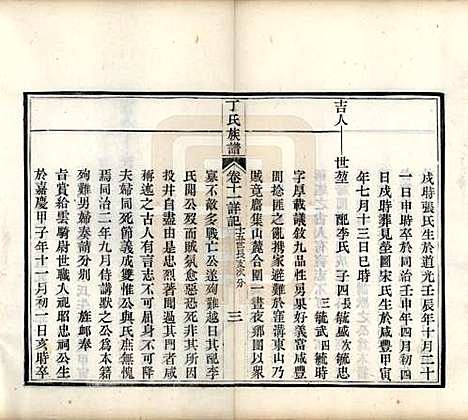 戌時張氏生於道光壬辰年十月二十
一日申時卒於同治壬申年四月初四
日戌時葬見塋圖宋氏生於咸豐甲寅
年七月十三日巳時
吉人
世堃
配李氏
子四長毓盛次毓忠
三毓武四毓時
字厚載議敘九品性勇果好義當咸豐
間捻匪之亂攜家避難於窪溝東山乃
賊竟麕集山麓合圍一晝夜鄉團以眾
寡不敵多戰亡公遂殉難越日其配李
氏聞公歿而賊氛愈惡死非其所因
投井自盡由是其婦
稱述之古人有言志不可屈身不可辱
夫婦同死節義成雙惟公與氏庶無愧
焉同治二年九月侍講默之公為本籍
殉難男婦奏請分別旌卹奉
旨賞給雲騎尉世職入祀昭忠祠公生
於嘉慶甲子年十一月初一日亥時卒
丁氏族譜
卷十一詳記
三